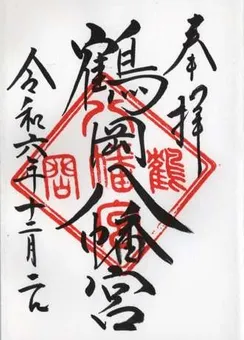 奉拝
鶴岡八幡宮
令和六年十二月二日
鶴
八幡宮
岡